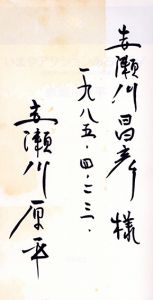 赤瀬川昌彦様
一九八五・四・二三・
赤瀬川原平